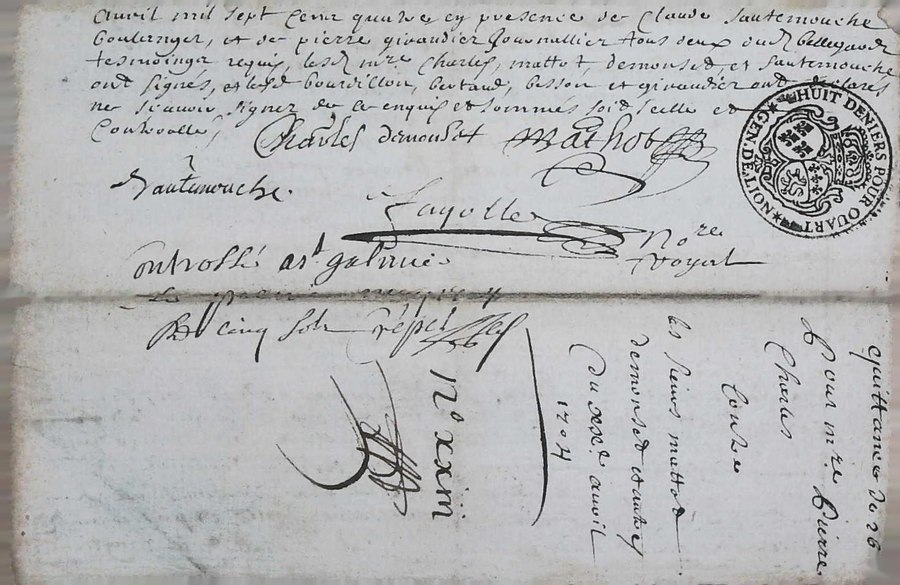 avril mil sept cent quatre en presence de Claude Sautemouche
boulenger, et de pierre giraudier Journallier tous deux dud. bellegarde
tesmoings requis, lesd. mre Charles, mattot, demouset et Sautemouche
ont signés, et lesd bourdillon, bertaud, besson et giraudier ont declarés
ne scavoir signer de ce enquis et sommés soit scellé et
Controllé,
Charles demouset Mathot
Sautemouche.
fayolle
Nore
Royal
Controllé a st galmie
le
R cinq sols
No xxiii
quittance du 26
Pour mre Pierre
Charles
Contre
les sieurs mattot
demouset et autres
du xxe avril
1704
GEN. DE. ITNOIL HUIT DENIERS POUR QUART